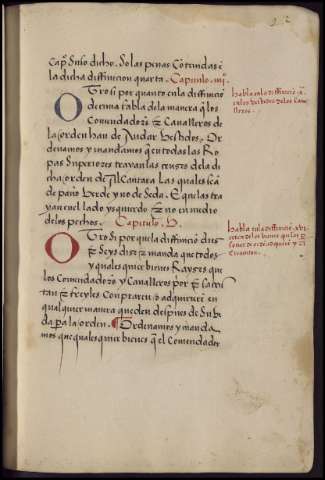 cap.º suso dicho. So las penas cõtenidas ẽ
la dicha diffinicion quarta. Capitulo. iiij.
OTro si por quanto en la diffinicion
decima habla de la manera q̃ los
Comendadores ⁊ Cavalleros de
la orden han de andar vestidos. Or
denamos y mandamos q̃ en todas las Ro
pas Superiores trayan las cruzes de la di
cha orden de Alcantara Las quales seã
de paño verde y no de Seda. E q̃ las tra
yan en el lado ysquierdo ⁊ no en medio
de los pechos. Capitulo. V.
OTro si por que la diffinicio dies
⁊ Seys dise ⁊ manda que todos
y quales quier bienes Rayses que
los Comendadores y Cavalleros
⁊ freyles Compraren o adquiriere en
qual quier manera queden despues de Su vi
da pa la orden. Ordenamos y manda
mos que quales quier bienes q̃ el Comendador
habla en la diffinició x.ª
en los vestidos de los Cava
lleros.
habla en la diffinició xvi.
cerca de los bienes que los